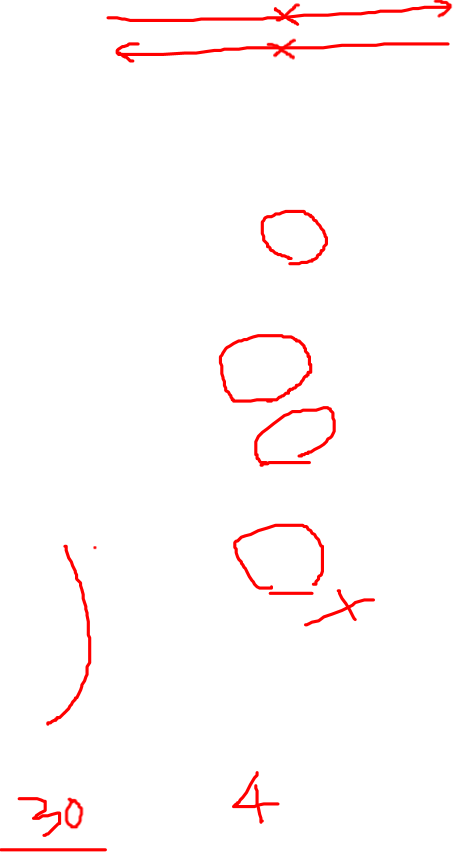 30 4